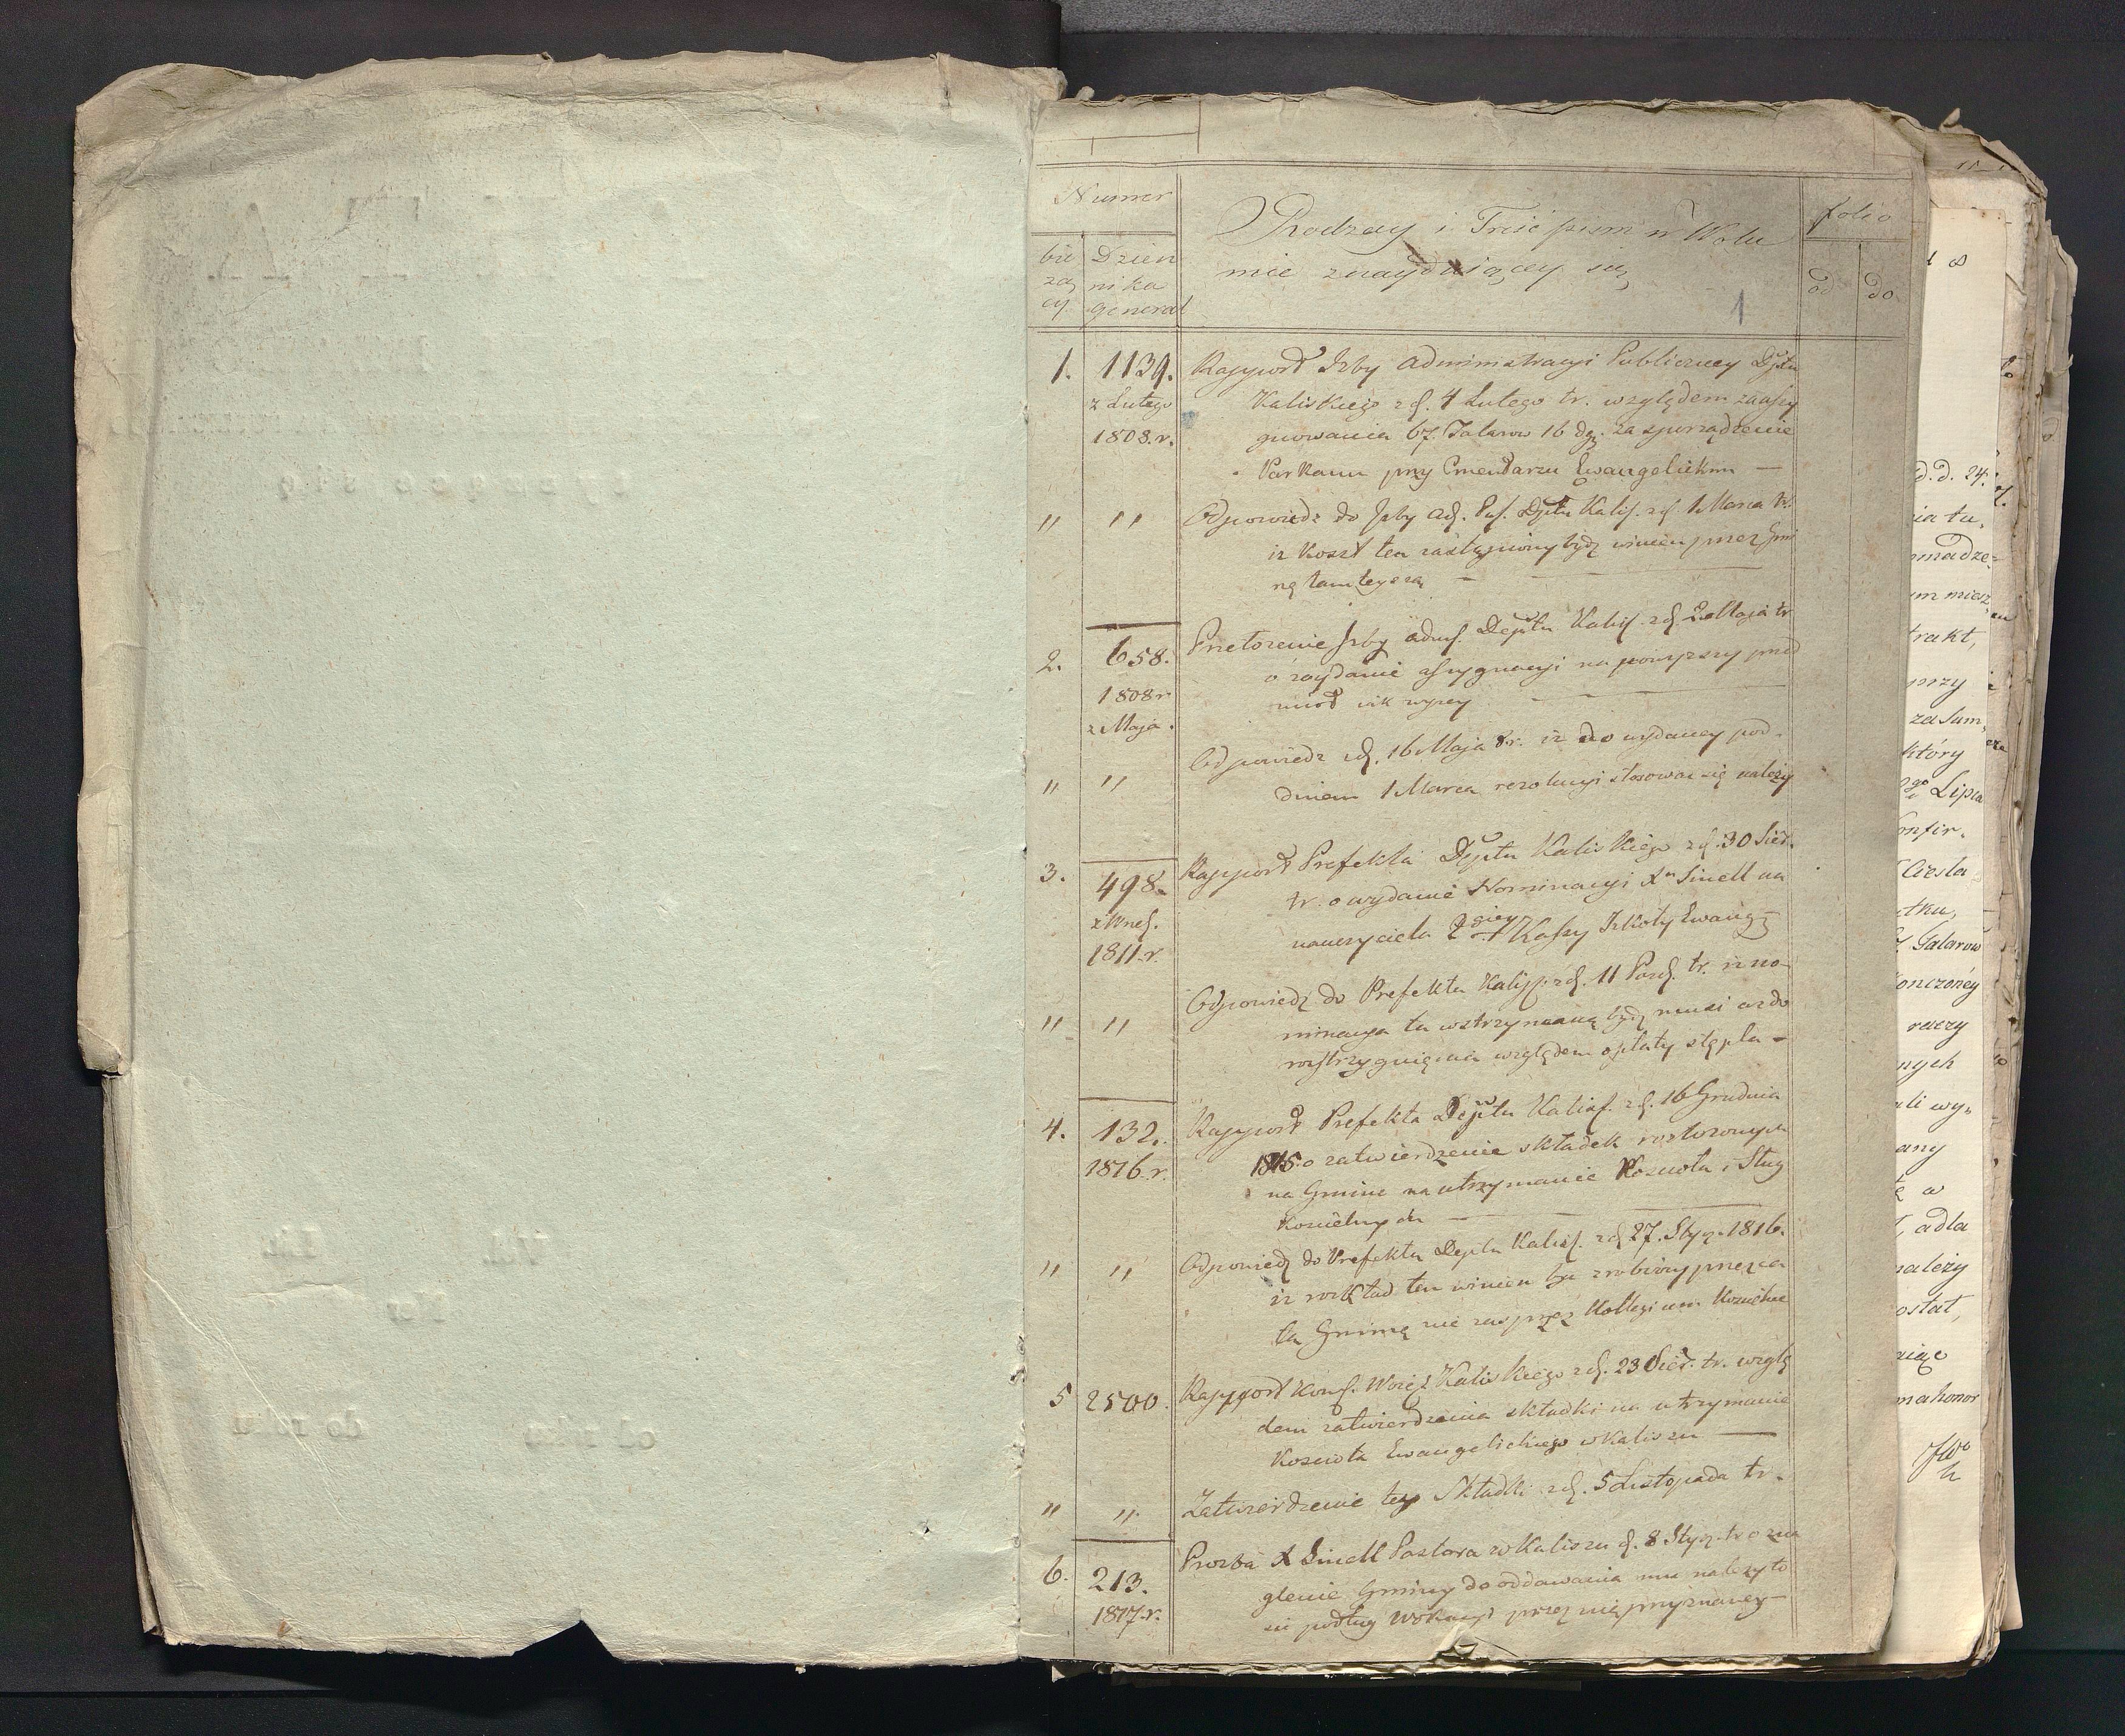 Numer
Rodzay i Treść pism w Wolu
mie znayduiący się
folio
bie
żą
cy
Dzien
nika
general
od
do
1
1. 1139. Rapport Izby Administracyi Publiczney Dptu
z Lutego Kaliskiego z d. 4 Lutego tr. względem zaassy
1808.r. gnowania 67. Talarow 16 dgr. za sporządzenie
Parkanu przy Cmentarzu Ewangelickim —
" " Odpowiedz do Izby Ad. Pu. Dptu Kalis. z d. 1 Marca tr.
iz koszt ten zastąpiony bydź winien przez Gmi
nę tamteyszą —
2. 658. Przełożenie Izby Adms. Deptu Kalis. z d. 2 Maja tr
1808 r o wydanie assygnacyi na powyższy przed
z Maja. miot iak wyzey
" " Odpowiedz z d. 16 Maja 8 r. iz do wydaney pod
dniem 1 Marca rezolucyi stosować się należy
3. 498. Rapport Prefekta Dptu Kaliskiego z d. 30 Sier.
z Wrześ. tr. o wydanie Nominacyi Xa Sinell na
1811.r. nauczyciela 2giey Klassy Szkoły Ewang
" " Odpowiedź do Prefekta Kalis. z d. 11 Paźd. tr. iz no-
minacya ta wstrzymaną bydź musi aż do
rozstrzygnięnia względem opłaty stępla —
4. 132. Rapport Prefekta Deptu Kalis. z d. 16 Grudnia
1816.r. 1815 o zatwierdzenie składek rozłożonych
na Gminę na utrzymanie Kościoła i Sług
kościelnych —
" " Odpowiedź do Prefekta Deptu Kalis. z d. 27. Stycz. 1816.
iz rozkład ten winien być zrobiony przez ca
łą Gminę nie zas przez Kollegium Kościelne
5 2500. Rapport Kom. Woiew. Kaliskiego z d. 23 Sier. tr. wzglę
dem zatwierdzenia składki na utrzymanie
Kościoła Ewangelickiego w Kaliszu —
" " Zatwierdzenie tey Składki z d. 5 Listopada tr.
6. 213. Prozba X Sinell Pastora w Kaliszu d. 8 Stycz. tr o zna
1817.r. glenie Gminy do oddawania mu należyto
ści podług Wokacyi przez nię przyznaney —
d. d. 24.
ia tu,
madze-
m miesz
trakt,
przy
za Sum,
który
go Lipca
onfir.
Ciesla
tku,
Talarow
onczoney
raczy
nych
li wy,
any
w
adla
należy
ostat,